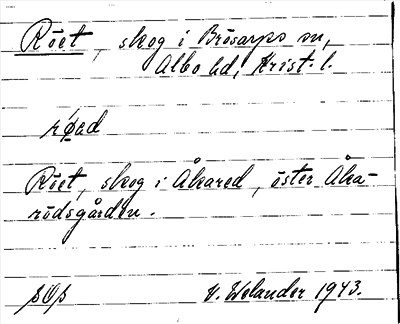 Röet, skog i Brösarps sn,
Albo hd, Krist. l.
røad
Röet, skog i Åkared, öster Åka-
rödsgården.
V. Welander 1943.